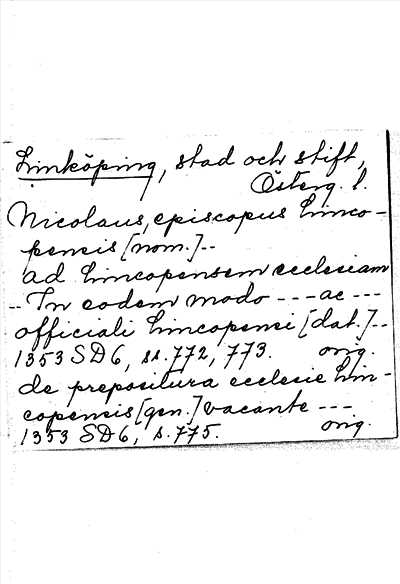 Linköping, stad och stift,
Österg. l.
Nicolaus, episcopus Linco-
pensis [nom.]--
ad Lincopensem ecclesiam
-- In eodem modo --- ac ---
officiali Lincopensi [dat.]--
1353 SD6, ss. 772, 773. orig.
de prepositura ecclesie Lin-
copensis [gen.] vacante ---
1353 SD6, s. 775. orig.